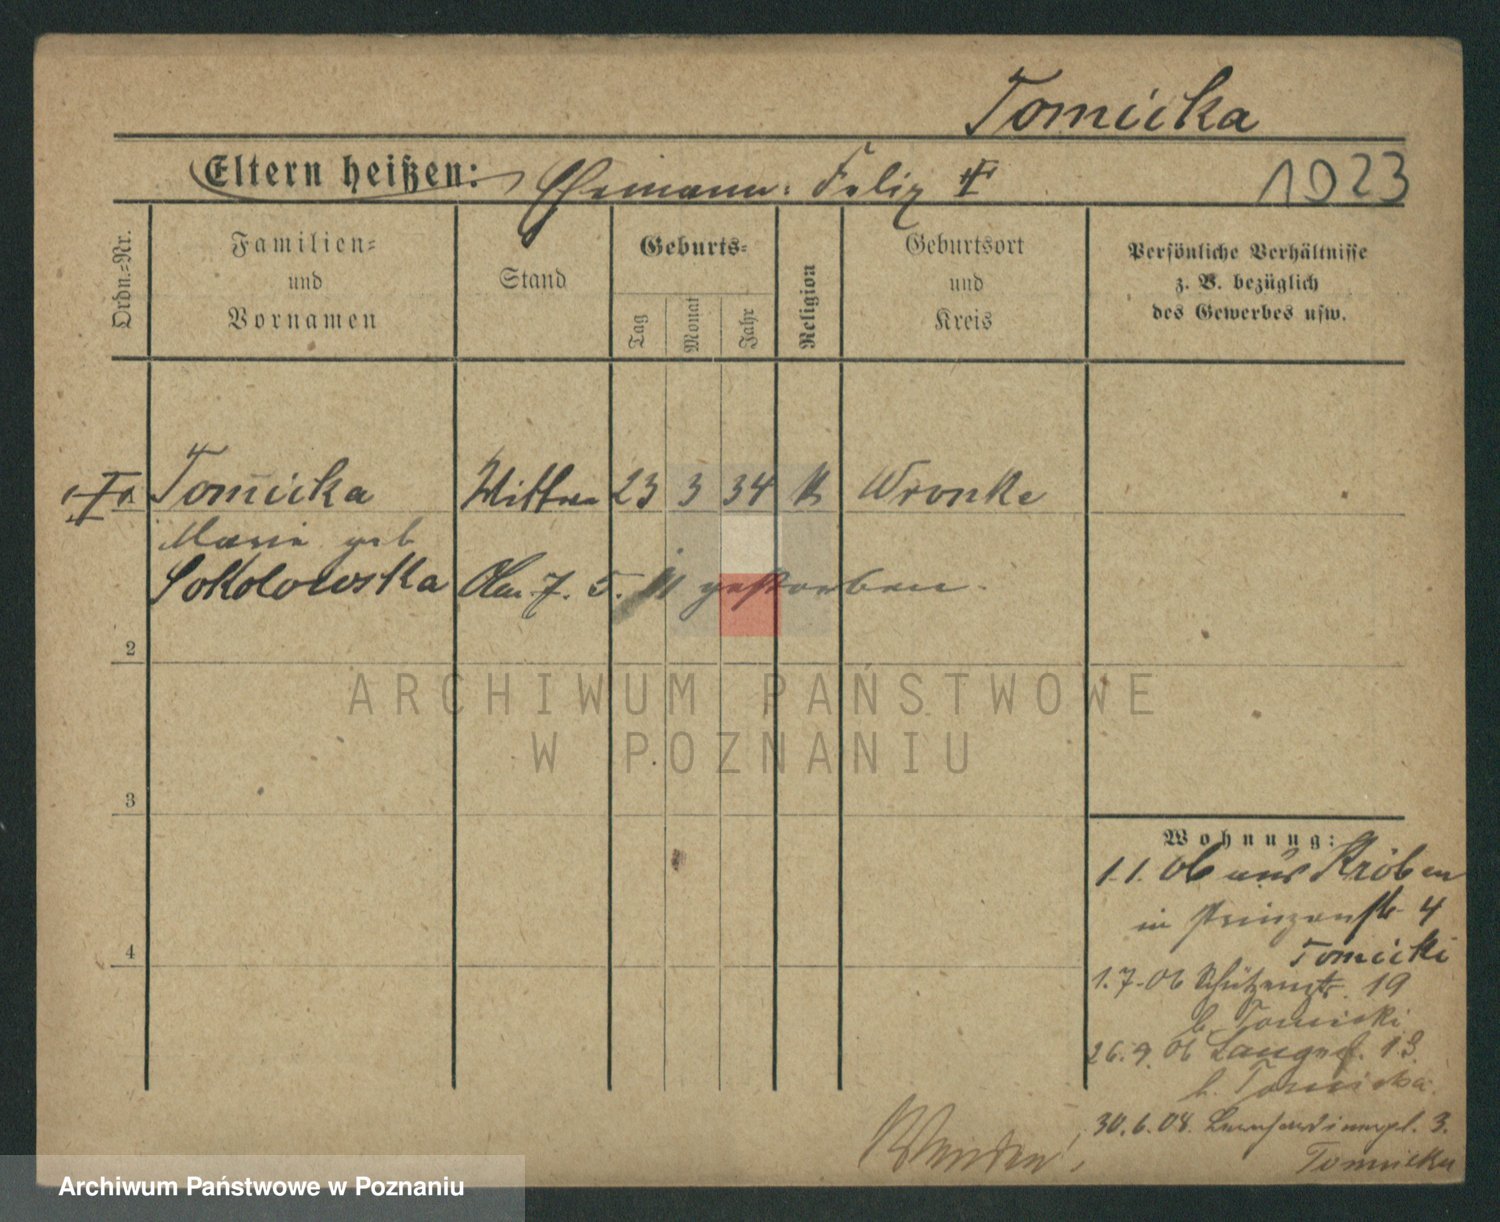 Tomicka
Eltern heißen: Ehemann: Felix †
1023
Ordn.=Nr.
Familien=
und
Vornamen
Stand
Geburts=
Tag
Monat
Jahr
Religion
Geburtsort
und
Kreis
Persönliche Verhältnisse
z. B. bezüglich
des Gewerbes usw.
Tomicka Wittwe 23 3 34 K Wronke
Marie geb
Sokolowska Am 7. 5. 11 gestorben.
2
3
4
Wohnung:
1.1.06 aus Kröben
in Prinzenstr 4
Tomicki
1.7.06 Schützenstr 19
b. Tomicki
26.9.06 Langestr. 13.
b. Tomicka.
30.6.08. Bernhardinerpl. 3.
Tomicka
Wenden!
ARCHIWUM PAŃSTWOWE
W POZNANIU
Archiwum Państwowe w Poznaniu